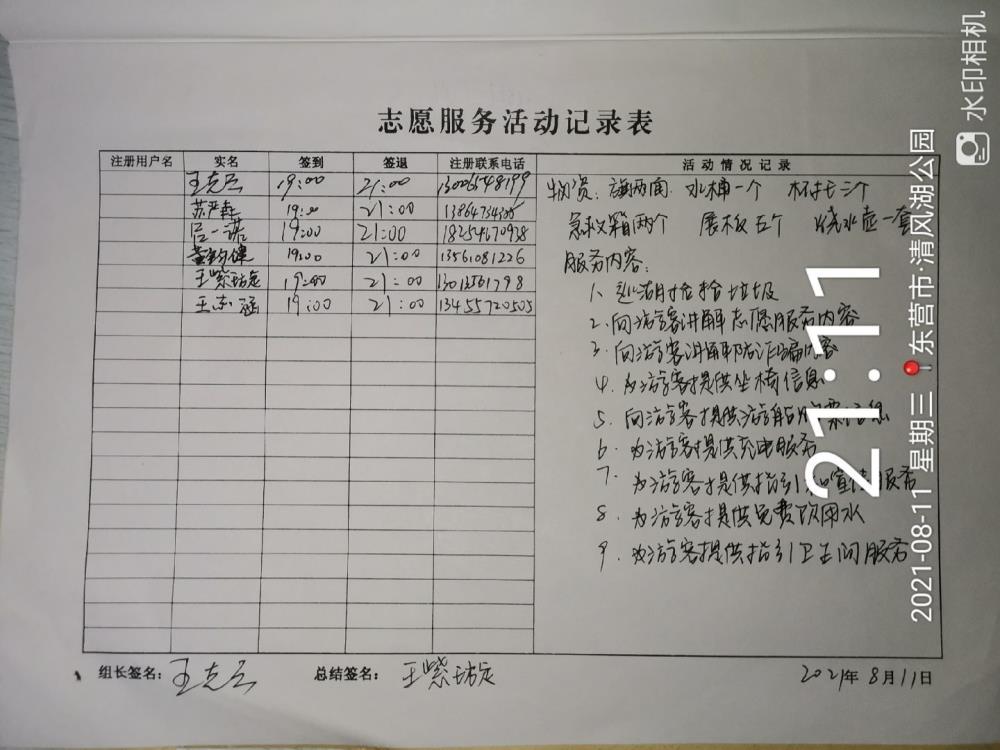 志愿服务活动记录表
注册用户名 实名 签到 签退 注册联系电话 活动情况记录
王克云 19:00 21:00
苏严 19:00 21:00
吕一诺 19:00 21:00 18254670938
董钧健 19:00 21:00 13561081226
王紫 19:00 21:00 13013561798
王东涵 19:00 21:00 13455720505
物资:旗两面 水桶一个 杯托三个
急救箱两个 展板五个 烧水壶一套
服务内容:
1、巡湖捡拾垃圾
2.向游客讲解志愿服务内容
3.向游客讲解防诈骗内容
4.为游客提供坐椅信息
5.向游客提供游船购票信息
6.为游客提供充电服务
7.为游客提供指引和宣传服务
8.为游客提供免费饮用水
9.为游客提供指引卫生间服务
组长签名:王克云 总结签名:王紫 2021年8月11日
水印相机
21:11
2021-08-11 星期三 东营市·清风湖公园